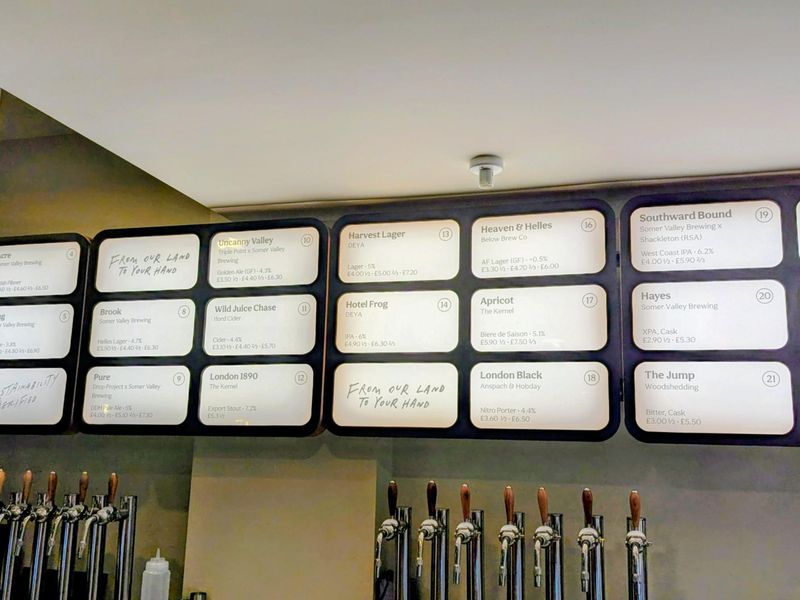 Somer Valley Brewing
4
5
FROM OUR LAND
TO YOUR HAND
Brook
8
Somer Valley Brewing
Helles Lager · 4.7%
£3.50 ½ · £4.40 ⅔ · £6.30
Pure
9
Drop Project x Somer Valley
Brewing
DDH Pale Ale · 5%
£4.00 ½ · £5.10 ⅔ · £7.30
Uncanny Valley
10
Triple Point x Somer Valley
Brewing
Golden Ale (GF) · 4.3%
£3.50 ½ · £4.40 ⅔ · £6.30
Wild Juice Chase
11
Ilford Cider
Cider · 4.4%
£3.10 ½ · £4.40 ⅔ · £5.70
London 1890
12
The Kernel
Export Stout · 7.2%
£5.3 ½
Harvest Lager
13
DEYA
Lager · 5%
£4.00 ½ · £5.00 ⅔ · £7.20
Hotel Frog
14
DEYA
IPA · 6%
£4.90 ½ · £6.30 ⅔
FROM OUR LAND
TO YOUR HAND
Heaven & Helles
16
Below Brew Co
AF Lager (GF) · <0.5%
£3.30 ½ · £4.70 ⅔ · £6.00
Apricot
17
The Kernel
Biere de Saison · 5.1%
£5.90 ½ · £7.50 ⅔
London Black
18
Anspach & Hobday
Nitro Porter · 4.4%
£3.60 ½ · £6.50
Southward Bound
19
Somer Valley Brewing x
Shackleton (RSA)
West Coast IPA · 6.2%
£4.00 ½ · £5.90 ⅔
Hayes
20
Somer Valley Brewing
XPA, Cask
£2.90 ½ · £5.30
The Jump
21
Woodshedding
Bitter, Cask
£3.00 ½ · £5.50